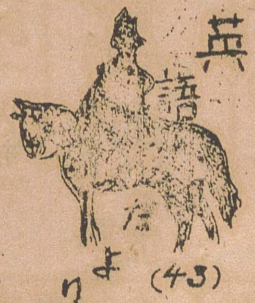 英
語
よ
り
(43)